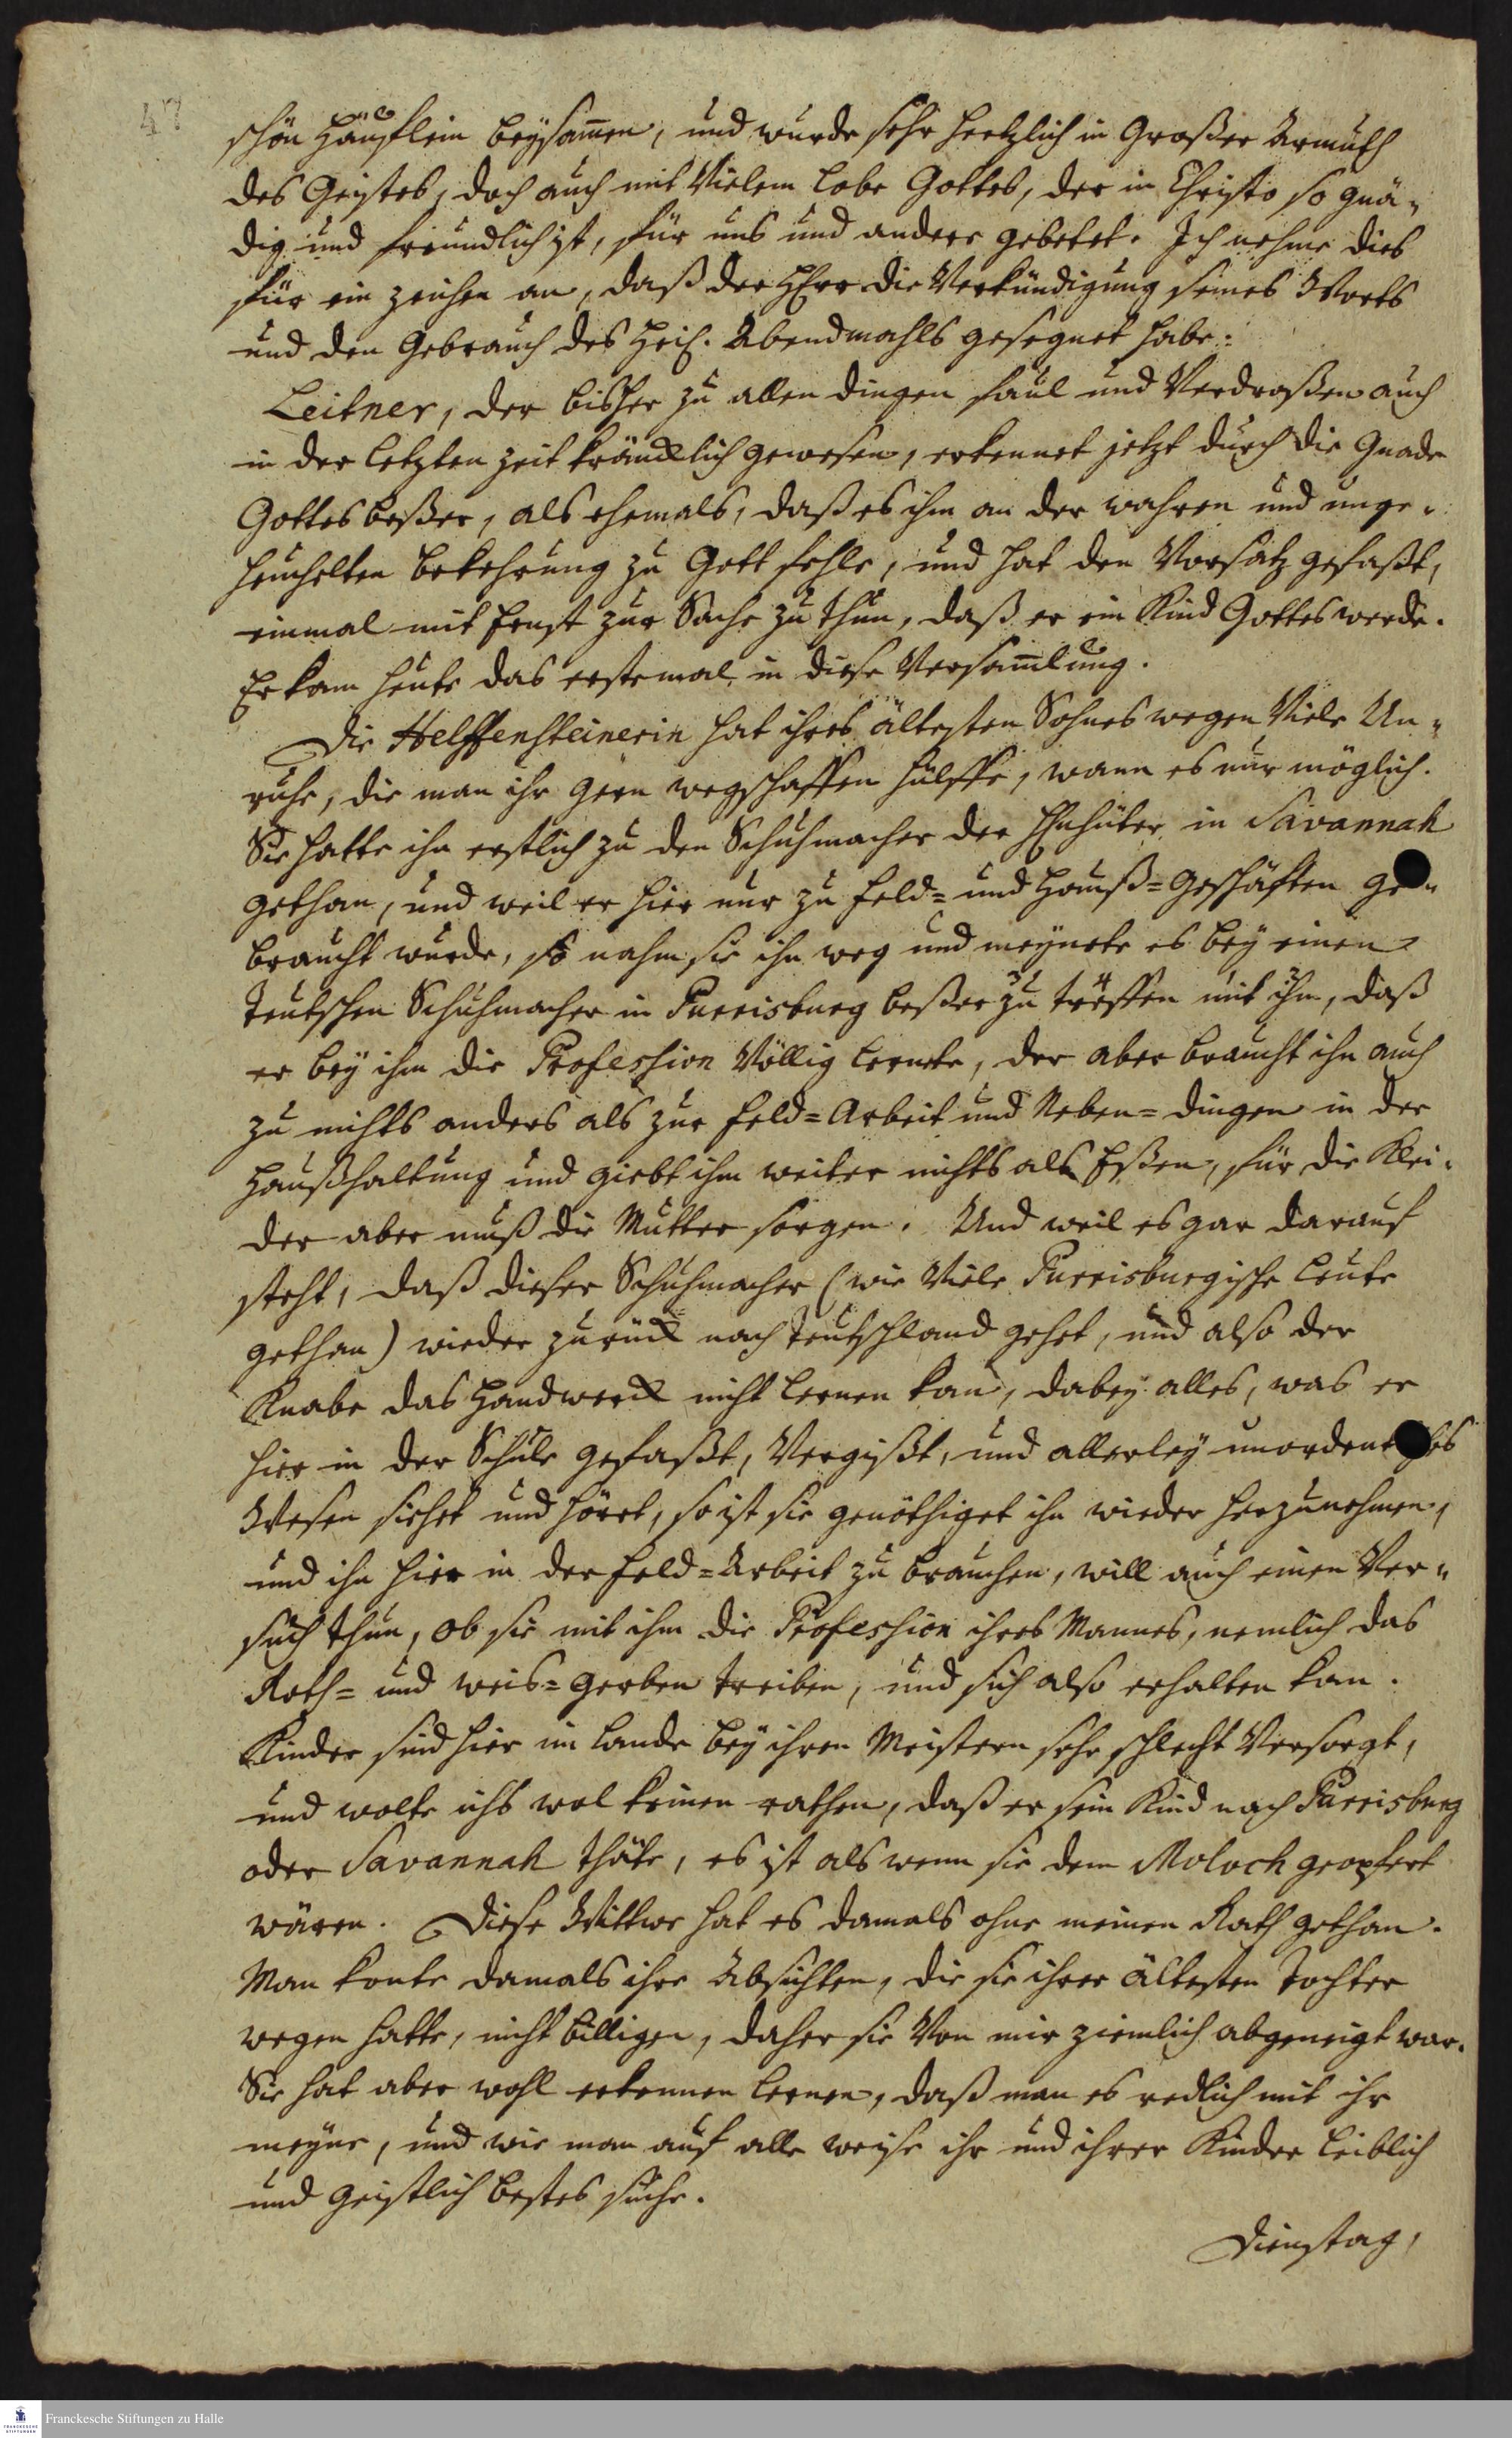 47
schön Häuflein beysam̄en, und wurde sehr hertzlich in Großer Armuth
des Geistes, doch auch mit Vielem Lobe Gottes, der in Christo so gnä-
dig und freundlich ist, für uns und andere gebetet. Ich nehme dies
für ein zeichen an, daß der HErr die Verkündigung seines Worts
und den Gebrauch des Heil. Abendmahls gesegnet habe.
Leitner, der bisher zu allen dingen faul und Verdroßen auch
in der letzten zeit kräncklich gewesen, erkennet jetzt durch die Gnade
Gottes beßer, als ehemals, daß es ihm an der wahren und unge-
heuchelten bekehrung zu Gott fehle, und hat den Vorsatz gefaßt,
einmal mit Ernst zur Sache zu thun, daß er ein Kind Gottes werde.
Er kam heute das erstemal in diese Versam̄lung.
Die Helffensteinerin hat ihres ältesten Sohnes wegen Viele Un-
ruhe, die man ihr gern wegschaffen hülffe, wann es nur möglich.
Sie hatte ihn erstlich zu den Schuhmacher der Hhuter in Savannah
gethan, und weil er hier nur zu feld= und Hauß=geschäften ge-
braucht wurde, so nahm sie ihn weg und meynete es bey einen
teutschen Schuhmacher in Purrisburg beßer zu treffen mit ihm, daß
er bey ihm die Profession Völlig lernete, der aber braucht ihn auch
zu nichts anders als zur feld=Arbeit und Neben=dingen in der
Haußhaltung und giebt ihm weiter nichts als Eßen, für die Klei-
der aber muß die Mutter sorgen. Und weil es gar darauf
steht, daß dieser Schuhmacher (wie Viele Purrisburgische Leute
gethan) wieder zurück nach teutschland gehet, und also der
Knabe das Handwerck nicht lernen kan, dabey alles, was er
hier in der Schule gefaßt, Vergißt, und allerley unordent hes
Wesen siehet und höret, so ist sie genöthiget ihn wieder herzunehmen,
und ihn hier in der feld=Arbeit zu brauchen, will auch einen Ver-
such thun, ob sie mit ihm die Profession ihres Mannes, nemlich das
Roth= und weis=gerben treiben, und sich also erhalten kan.
Kinder sind hier im Lande bey ihren Meistern sehr schlecht Versorgt,
und wolte ichs wol keinen rathen, daß er sein Kind nach Purrisburg
oder Savannah thäte, es ist als wenn sie dem Moloch geopfert
wären. Diese Wittwe hat es damals ohne meinen Rath gethan.
Man konte damals ihre Absichten, die sie ihrer ältesten Tochter
wegen hatte, nicht billigen, daher sie Von mir ziemlich abgeneigt war.
Sie hat aber wohl erkennen lernen, daß man es redlich mit ihr
meyne, und wie man auf alle weise ihr und ihrer Kinder leiblich
und geistlich bestes suche.
Dienstag,
Franckesche Stiftungen zu Halle